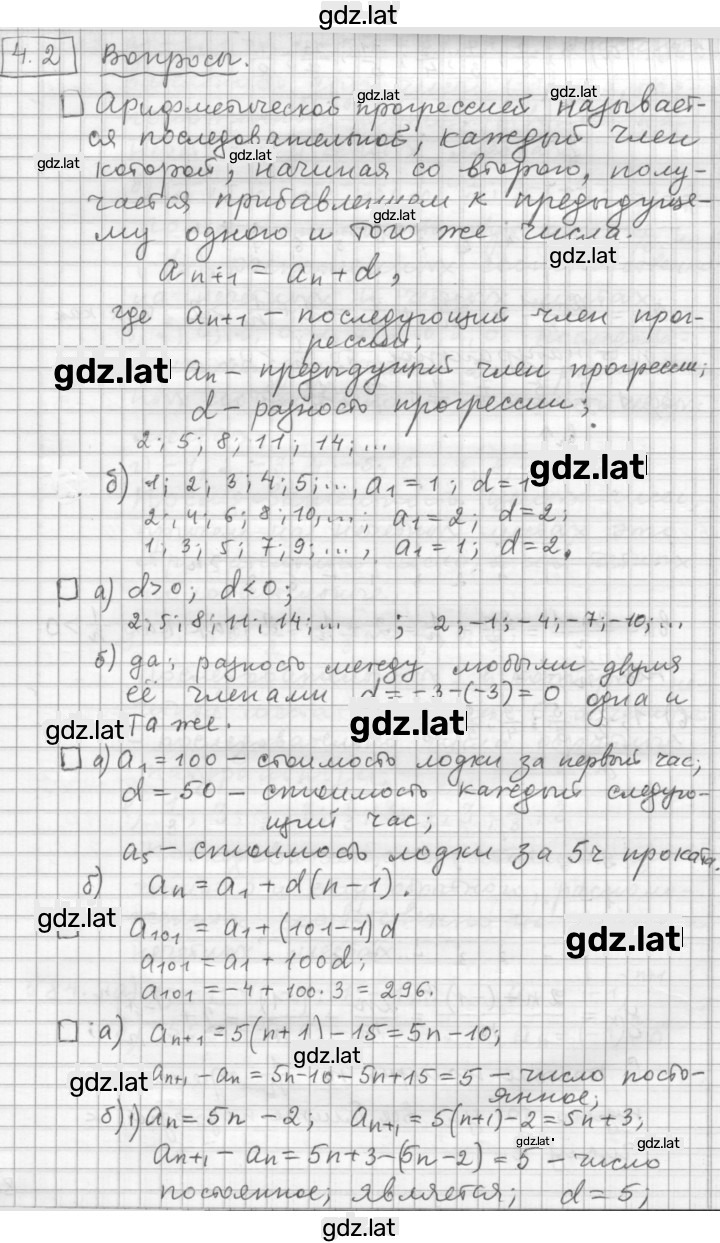 gdz.lat
4.2 Вопросы.
gdz.lat gdz.lat
Арифметической прогрессией называет-
ся последовательной, каждый член
gdz.lat gdz.lat
которой, начиная со второго, полу-
чается прибавлением к предыдуще-
gdz.lat
му одного и того же числа.
gdz.lat
an+1 = an + d,
где an+1 – последующий член прог-
рессии,
gdz.lat an – предыдущий член прогрессии;
d – разность прогрессии;
2; 5; 8; 11; 14; ...
gdz.lat
б) 1; 2; 3; 4; 5; ..., a1 = 1; d = 1
2; 4; 6; 8; 10, ...; a1 = 2; d = 2;
1; 3; 5; 7; 9; ..., a1 = 1; d = 2.
а) d > 0; d < 0;
2; 5; 8; 11; 14; ... ; 2; -1; -4; -7; -10; ...
б) да; разность между любыми двумя
её членами d = -3-(-3) = 0 одна и
gdz.lat та же. gdz.lat
а) a1 = 100 – стоимость лодки за первый час;
d = 50 – стоимость каждый следую-
щий час;
a5 – стоимость лодки за 5ч проката.
б) an = a1 + d(n-1).
gdz.lat
a101 = a1 + (101-1)d gdz.lat
a101 = a1 + 100d;
a101 = -4 + 100·3 = 296.
а) an+1 = 5(n+1) - 15 = 5n - 10;
gdz.lat
gdz.lat an+1 - an = 5n-10-5n+15 = 5 – число посто-
янное;
б) 1) an = 5n - 2; an+1 = 5(n+1)-2 = 5n+3;
gdz.lat gdz.lat
an+1 - an = 5n+3-(5n-2) = 5 – число
постоянное; является; d = 5;
gdz.lat